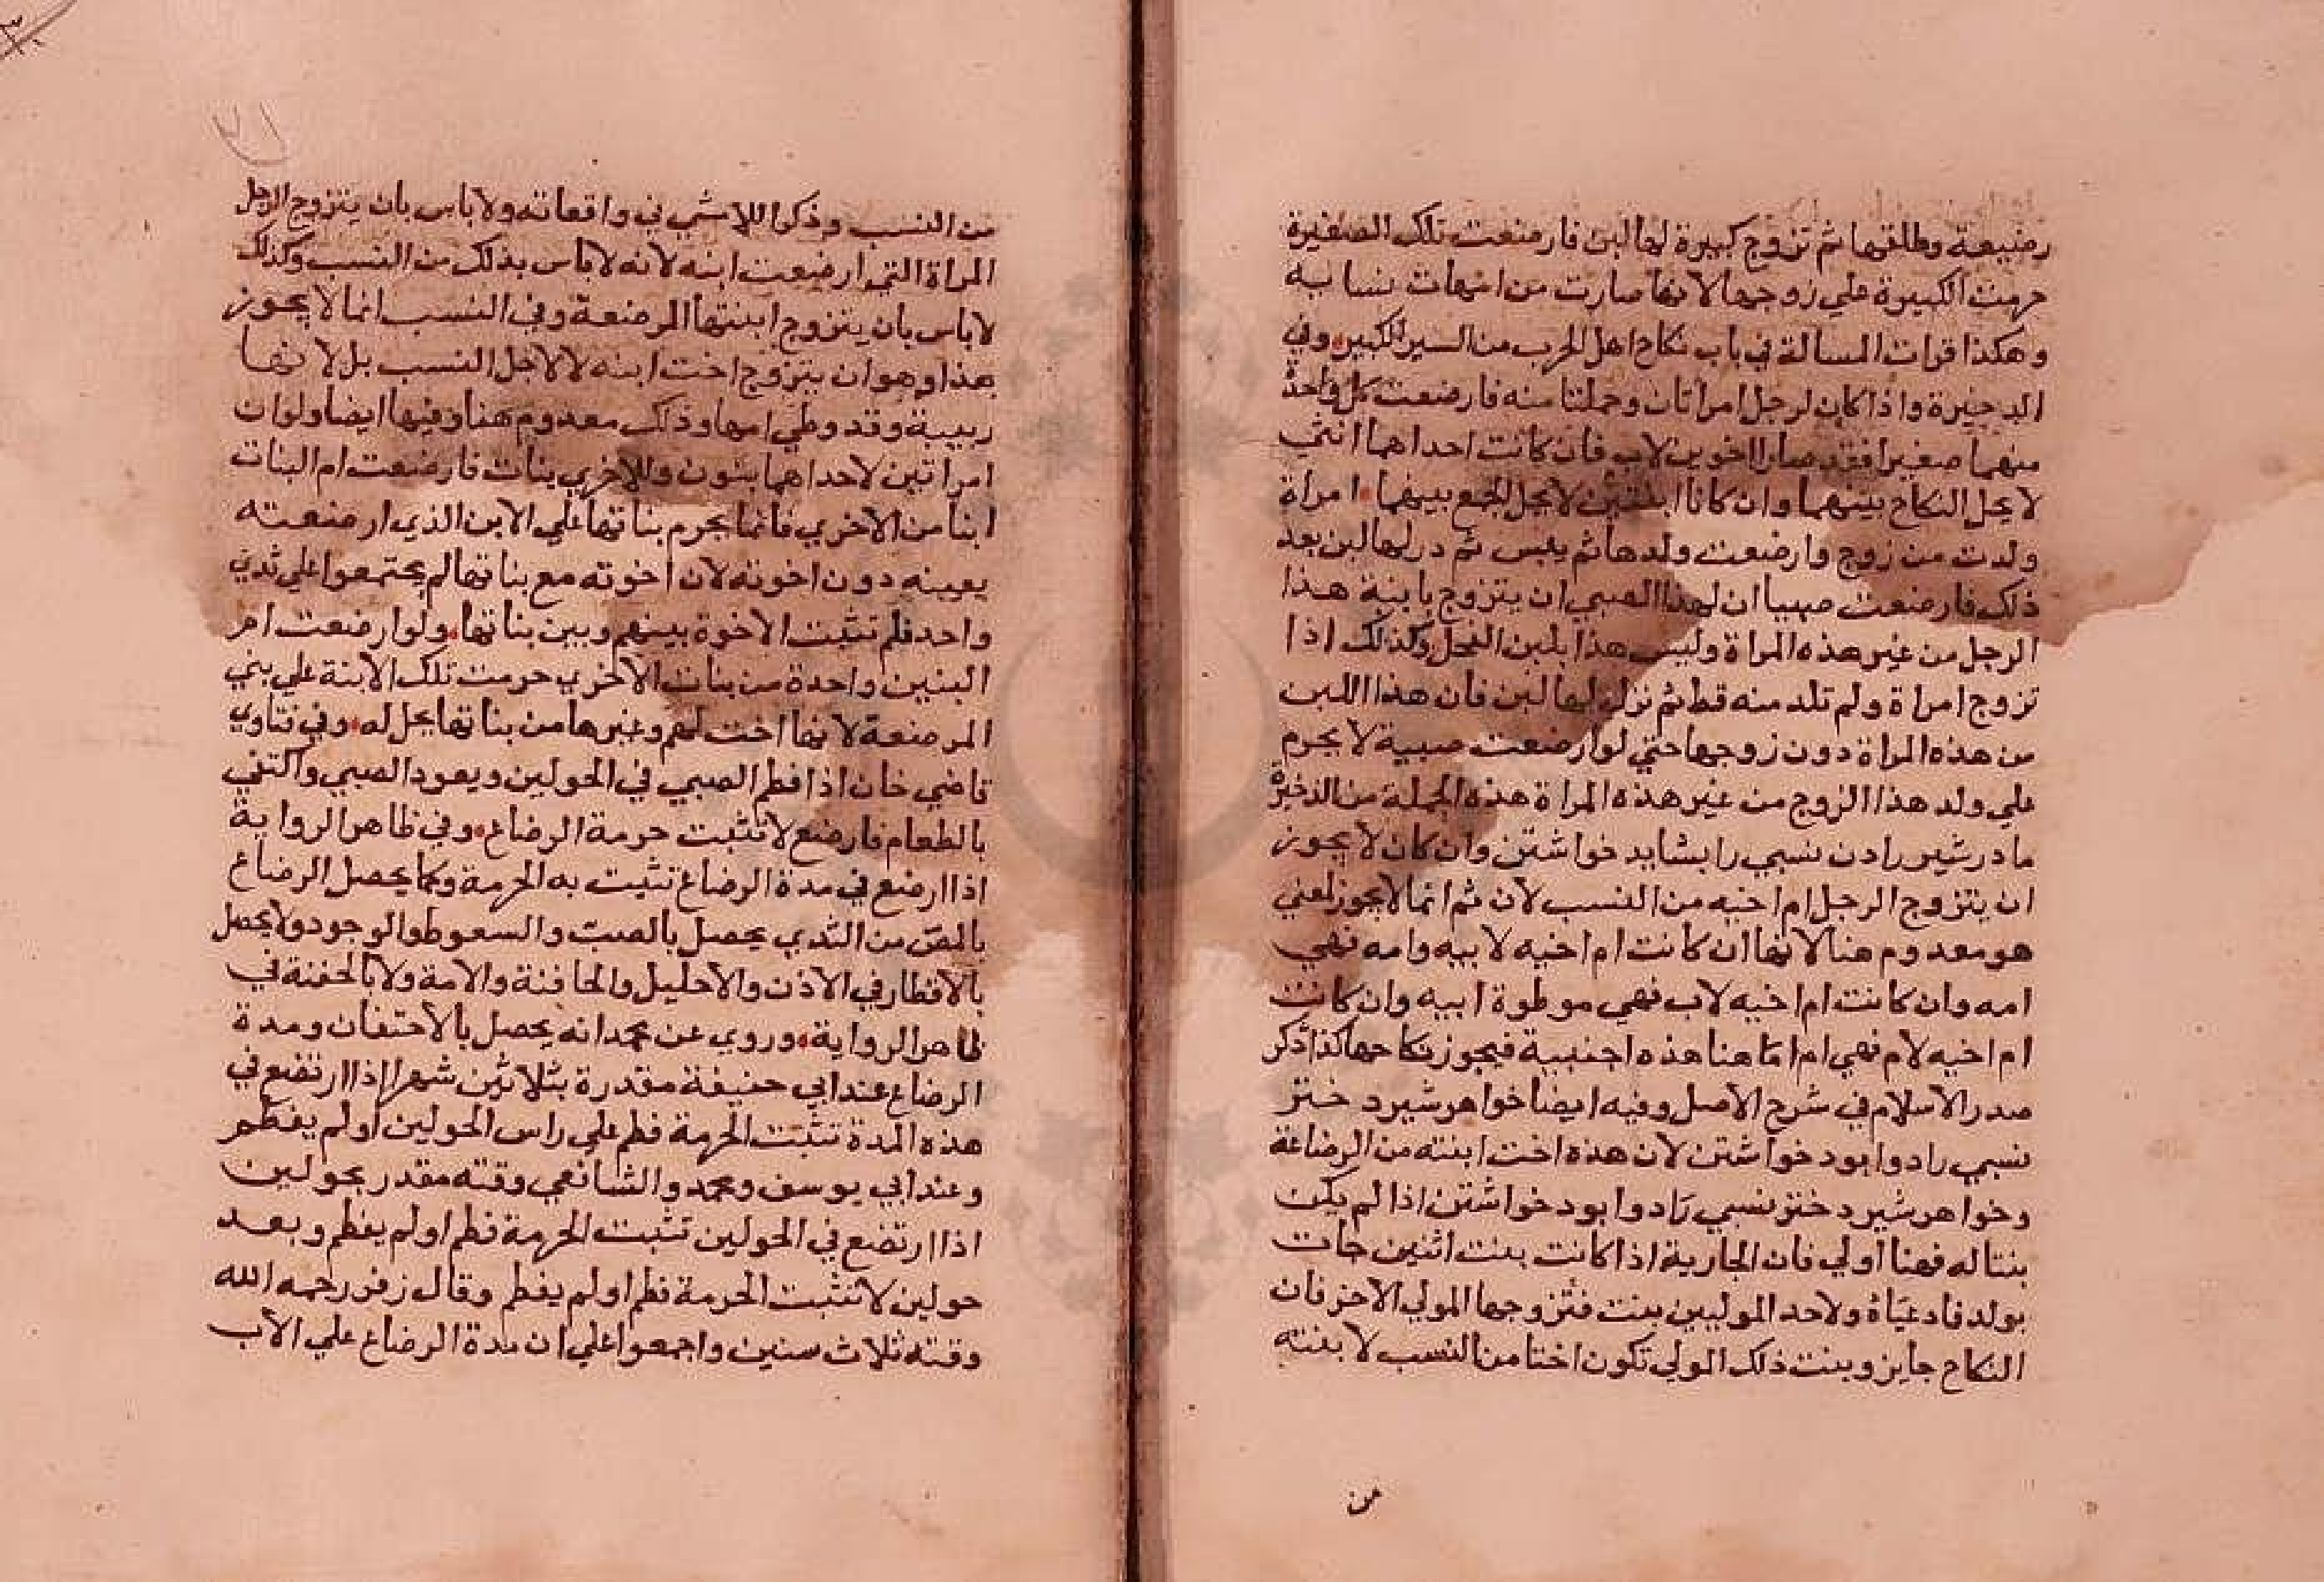 رضيعة وطلقها ثم تزوج كبيرة لها لبن فارضعت تلك الصغيرة
حرمت الكبيرة علي زوجها لانها صارت من امهات نسايه
وهكذا قرات المسالة في باب نكاح اهل الحرب من السير الكبير وفي
الدخيرة واذا كان لرجل امراتان وحملتا منه فارضعت كل واحدة
منهما صغيرا فقد صارا اخوين لاب فان كانت احداهما انثي
لا يحل النكاح بينهما وان كانا ابنتين لا يحل الجمع بينهما امراة
ولدت من زوج وارضعت ولدها ثم يبس ثم در لها لبن بعد
ذلك فارضعت صبيا ان لهذا الصبي ان يتزوج بابنة هذا
الرجل من غير هذه المراة وليس هذا بلبن الفحل وكذلك اذا
تزوج امراة ولم تلد منه قط ثم نزل لها لبن فان هذا اللبن
من هذه المراة دون زوجها حتي لو ارضعت صبية لا يحرم
علي ولد هذا الزوج من غير هذه المراة هذه الجملة من الذخيرة
مادر شير رادن نسبي را بشايد خواشتن وان كان لا يجوز
ان يتزوج الرجل ام اخيه من النسب لان ثم انما لا يجوز لمعني
هو معدوم هنا لانها ان كانت ام اخيه لابيه وامه فهي
امه وان كانت ام اخيه لاب فهي موطوة ابيه وان كانت
ام اخيه لام فهي ام اما هنا هذه اجنبية فيجوز نكاحها كذا ذكر
صدر الاسلام في شرح الاصل وفيه ايضا خواهر شير دختر
نسبي را دوا بود خواشتن لان هذه اخت ابنته من الرضاعة
وخواهر شير دختر نسبي را دوا بود خواشتن اذا لم يكن
بنتا له فهنا اولي فان الجارية اذا كانت بنت اثنين جات
بولد فادعياه ولاحد الموليين بنت فتزوجها المولي الاخر فان
النكاح جايز وبنت ذلك المولي تكون اختا من النسب لابنته
من
من النسب وذكر اللامشي في واقعاته ولا باس بان يتزوج الرجل
المراة التي ارضعت ابنه لانه لا باس بذلك من النسب وكذلك
لا باس بان يتزوج ابنتها المرضعة وفي النسب انما لا يجوز
هذا وهو ان يتزوج اخت ابنه لا لاجل النسب بل لانها
ربيبة وقد وطي امها وذلك معدوم هنا وفيها ايضا ولو ان
امراتين لاحداهما بنون وللاخري بنات فارضعت ام البنات
ابنا من الاخري فانما يحرم بناتها علي الابن الذي ارضعته
بعينه دون اخوته لان اخوته مع بناتها لم يجتمعوا علي ثدي
واحد فلم تثبت الاخوة بينهم وبين بناتها ولو ارضعت ام
البنين واحدة من بنات الاخري حرمت تلك الابنة علي بني
المرضعة لانها اخت لهم وغيرها من بناتها يحل له وفي فتاوي
قاضي خان اذا فطم الصبي في الحولين ويعود الصبي واكتفي
بالطعام فارضع لا تثبت حرمة الرضاع وفي ظاهر الرواية
اذا ارضع في مدة الرضاع تثبت به الحرمة وكما يحصل الرضاع
بالمص من الثدي يحصل بالصب والسعوط والوجود ولا يحصل
بالاقطار في الاذن والاحليل والجافنة والامة ولا بالحقنة في
ظاهر الرواية وروي عن محمد انه يحصل بالاحتقان ومدة
الرضاع عند ابي حنيفة مقدرة بثلاثين شهرا اذا ارتضع في
هذه المدة تثبت الحرمة فطم علي راس الحولين اولم يفطم
وعند ابي يوسف ومحمد والشافعي وقته مقدر بحولين
اذا ارتضع في الحولين تثبت الحرمة فطم اولم يفطم وبعد
حولين لا تثبت الحرمة فطم اولم يفطم وقال زفر رحمه الله
وقته ثلاث سنين واجمعوا علي ان مدة الرضاع علي الاب